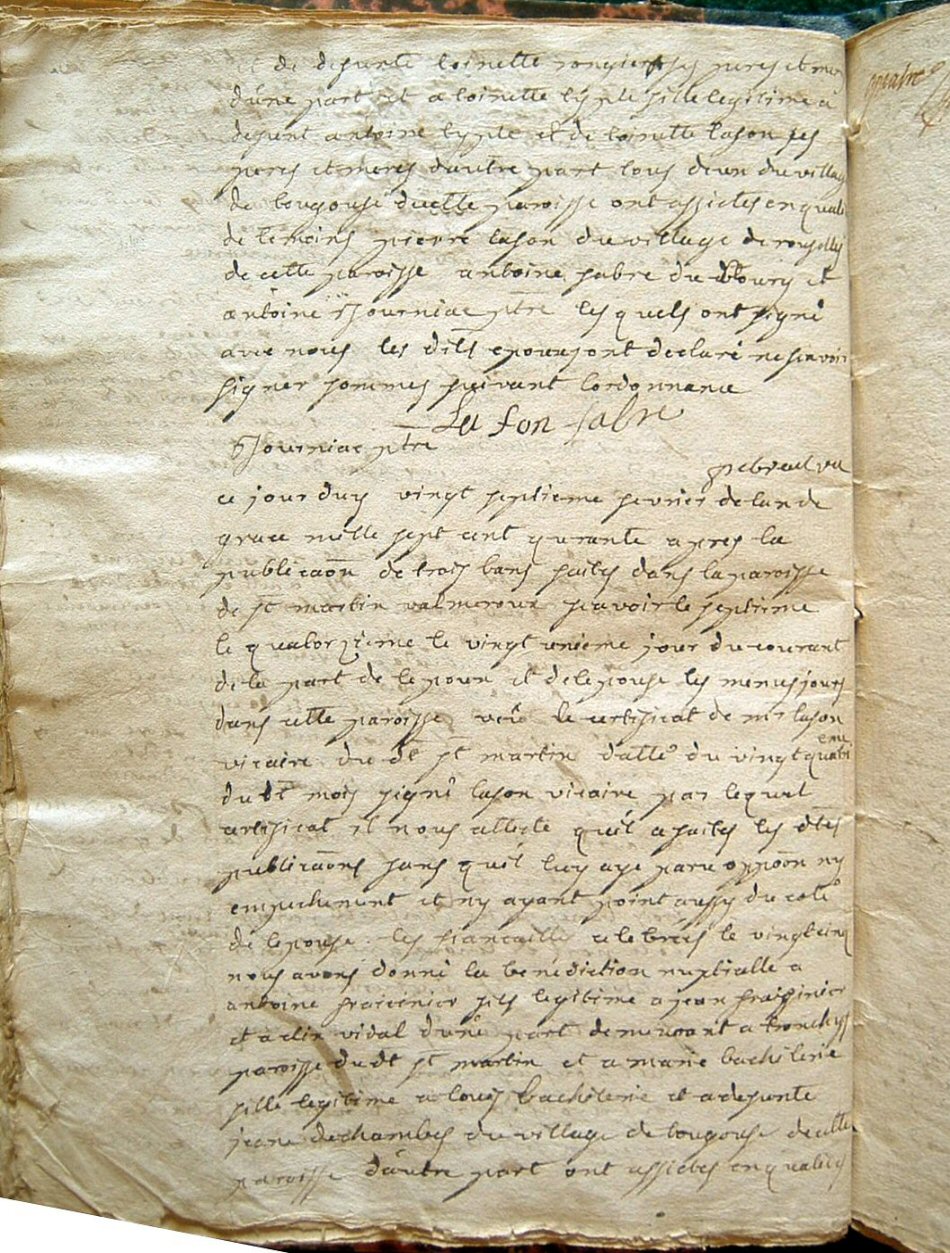 et de defunte toinette rongier ses peres et mer
d'une part et a toinette cypte fille legitime a
defunt antoine cypte et de toinette lafon ses
peres et meres d'autre part tous deux du villag
de tougouse ducette paroisse ont assistes en quali
de temoins pierre lafon du village de
de cette paroisse antoine fabre du bourg et
antoine Journiac ptre les quels ont signé
avec nous les dits epoux ont declaré ne scavoir
signer sommes suivant lordonnance
La fon fabre
Journiac ptre
ce jourduy vingt septieme fevrier de lan de
grace mille sept cent qurante apres la
publicaôn de trois bans faites dans la paroisse
de st martin valmeroux scavoir le septieme
le quatorzieme le vingt unieme jour du courant
de la part de lepoux et de lepouse les memes jours
dans cette paroisse veu le certificat de mr lafon
vicaire du dt st martin datté du vingt quatri
eme
du dt mois signé lafon vicaire par lequel
certificat il nous atteste quil a faites les dtes
publicaôns sans quil luy aye paru oppoôn ny
empechement et ny ayant point aussy du coté
de lepouse les fiancailles celebrées le vingt cinq
nous avons donné la benediction nuptialle a
antoine fraissinier fils legitime a jean fraissinier
et a alix vidal d'une part demeurant a
paroisse dudt st martin et a marie bachelerie
fille legitime a louis bachelerie et a defunte
jeane deschambes du village de tougouse de cette
paroisse d'autre part ont assistes en qualités